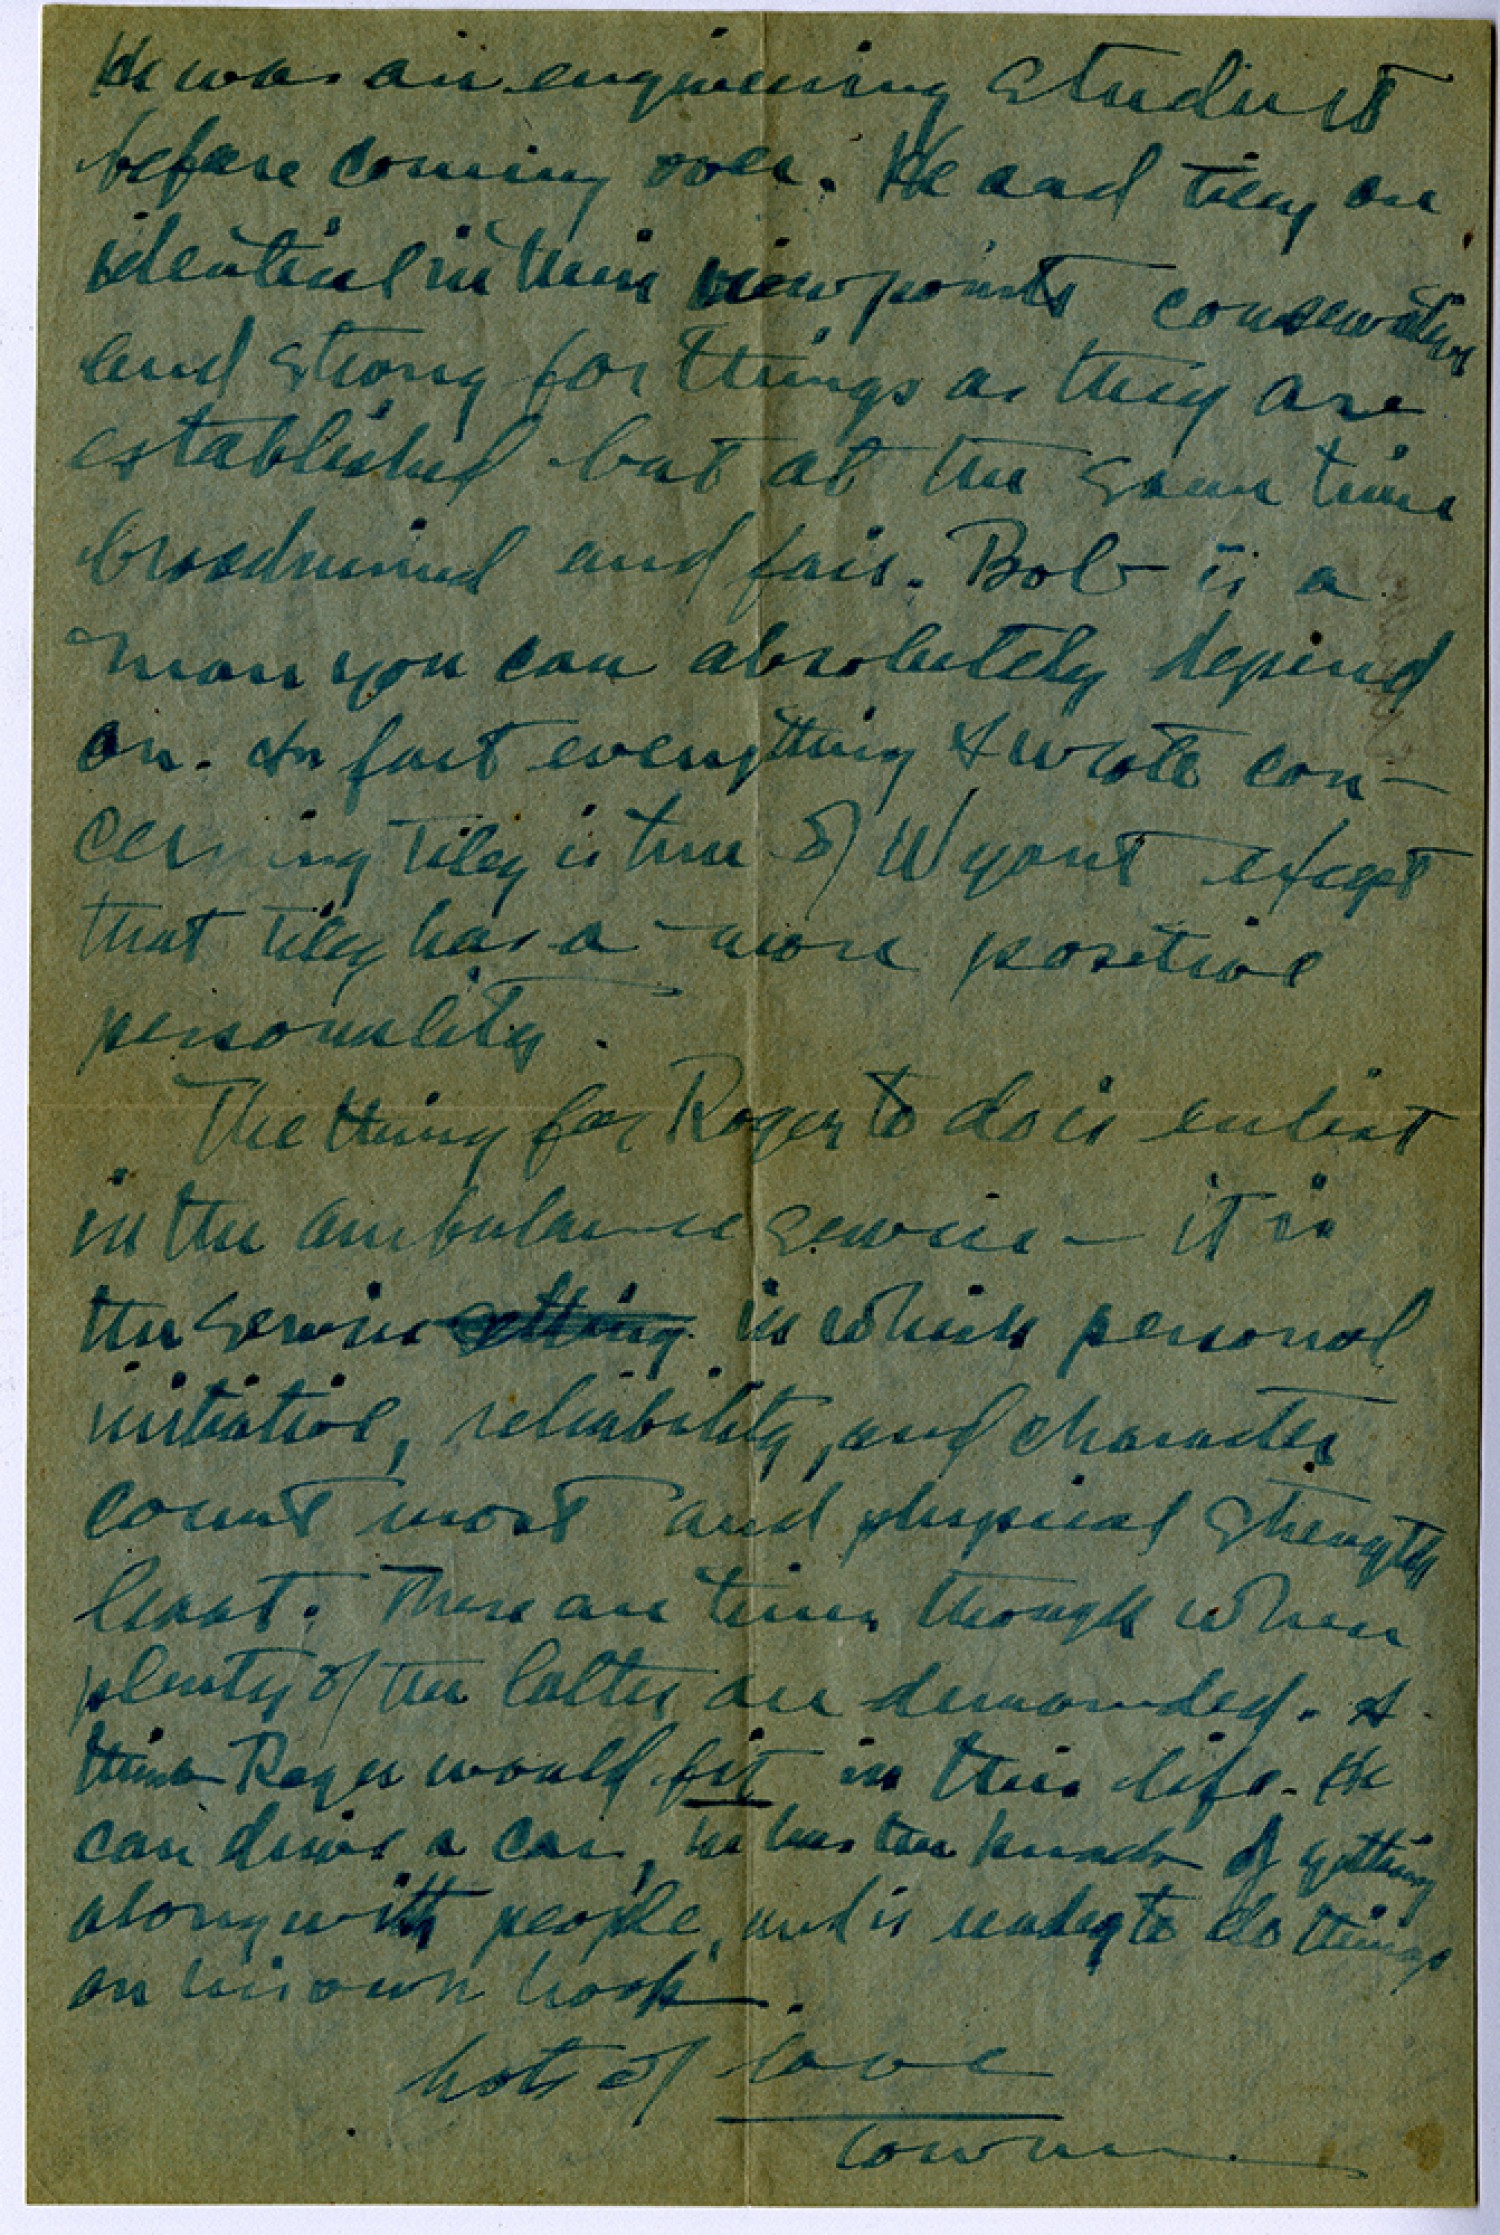 He was an engineering student
before coming over. He and Tiley are
identical in their viewpoints conservative
and strong for things as they are
established but at the same time
broadminded and fair. Bob is a
man you can absolutely depend
on. In fact everything I wrote con-
cerning Tiley is true of Wyant except
that Tiley has a more positive
personality.
The thing for Roger to do is enlist
in the ambulance service - it is
the service in which personal
initiative, reliability, and character
count most and physical strength
least. There are times though when
plenty of the latter are demanded. I
think Roger would fit in this life. He
can drive a car, he has the knack of getting
along with people, and is ready to do things
on his own hook.
Lots of love